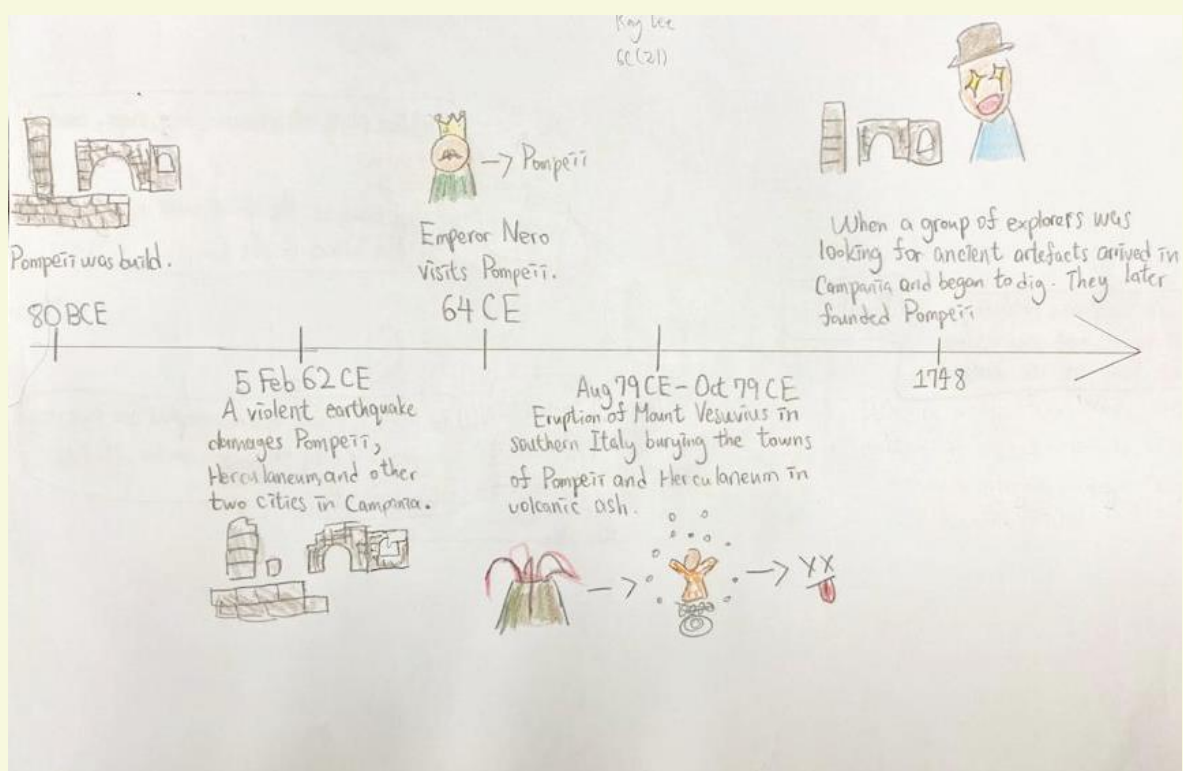 Kay Lee
6C(21)
→ Pompeii
Pompeii was build.
Emperor Nero
visits Pompeii.
When a group of explorers was
looking for ancient artefacts arrived in
Campania and began to dig. They later
founded Pompeii
80 BCE
64 CE
5 Feb 62 CE
A violent earthquake
damages Pompeii,
Herculaneum, and other
two cities in Campania.
Aug 79 CE - Oct 79 CE
Eruption of Mount Vesuvius in
southern Italy burying the towns
of Pompeii and Herculaneum in
volcanic ash.
1748